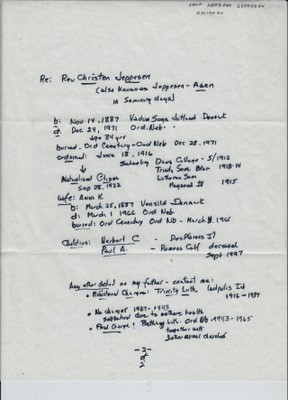 Re: Rev Christen Jeppesen
(also known as Jeppesen - Aaen
in Seminary days)
b: Nov 14, 1887 Vadum Sogn Jutland Denmark
d: Dec 24, 1971 Ord, Nebr -
age 84 yrs
buried: Ord Cemetery - Ord Neb Dec 28, 1971
ordained: June 18, 1916
Schooling Dana College - 5/1912
Trinity Sem. Blair 1912-14
Luthern Sem
Maywood Ill 1915
Naturalized Citizen
Sep 28, 1922
Wife: Anna K.
b: March 25, 1887 Denmark
d: March 1, 1966 Ord Neb
buried: Ord Cemetery Ord Nb - March 1966
Children: Herbert C. Des Plaines Il
Paul A. - Ramona Calif deceased
Sept 1997
Any other detail on my father - contact me:
Trinity Luth. Indpolis Id
1916 - 1937
No charges 1937 - 1943
due to mothers health
Final Charge: Bethany Luth. Ord Nb 1943-1965
together with
-2-
of
2